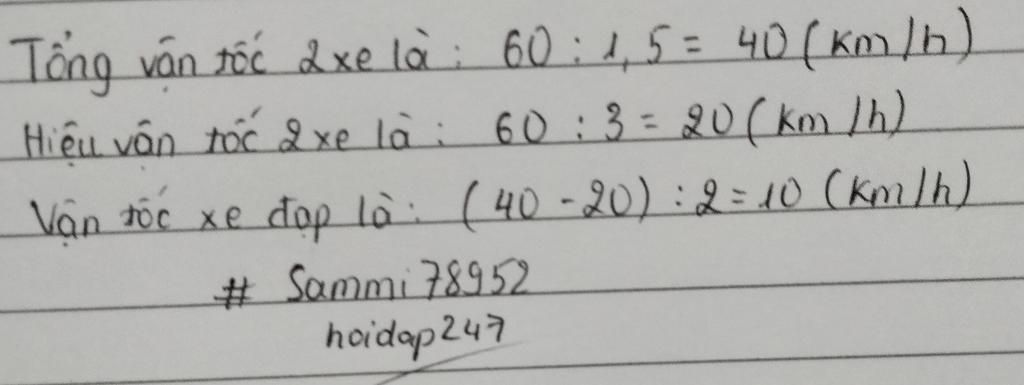 Tổng vận tốc 2 xe là: 60 : 1,5 = 40 (km/h)
Hiệu vận tốc 2 xe là: 60 : 3 = 20 (km/h)
Vận tốc xe đạp là: (40 - 20) : 2 = 10 (km/h)
# Sammi78952
hoidap247